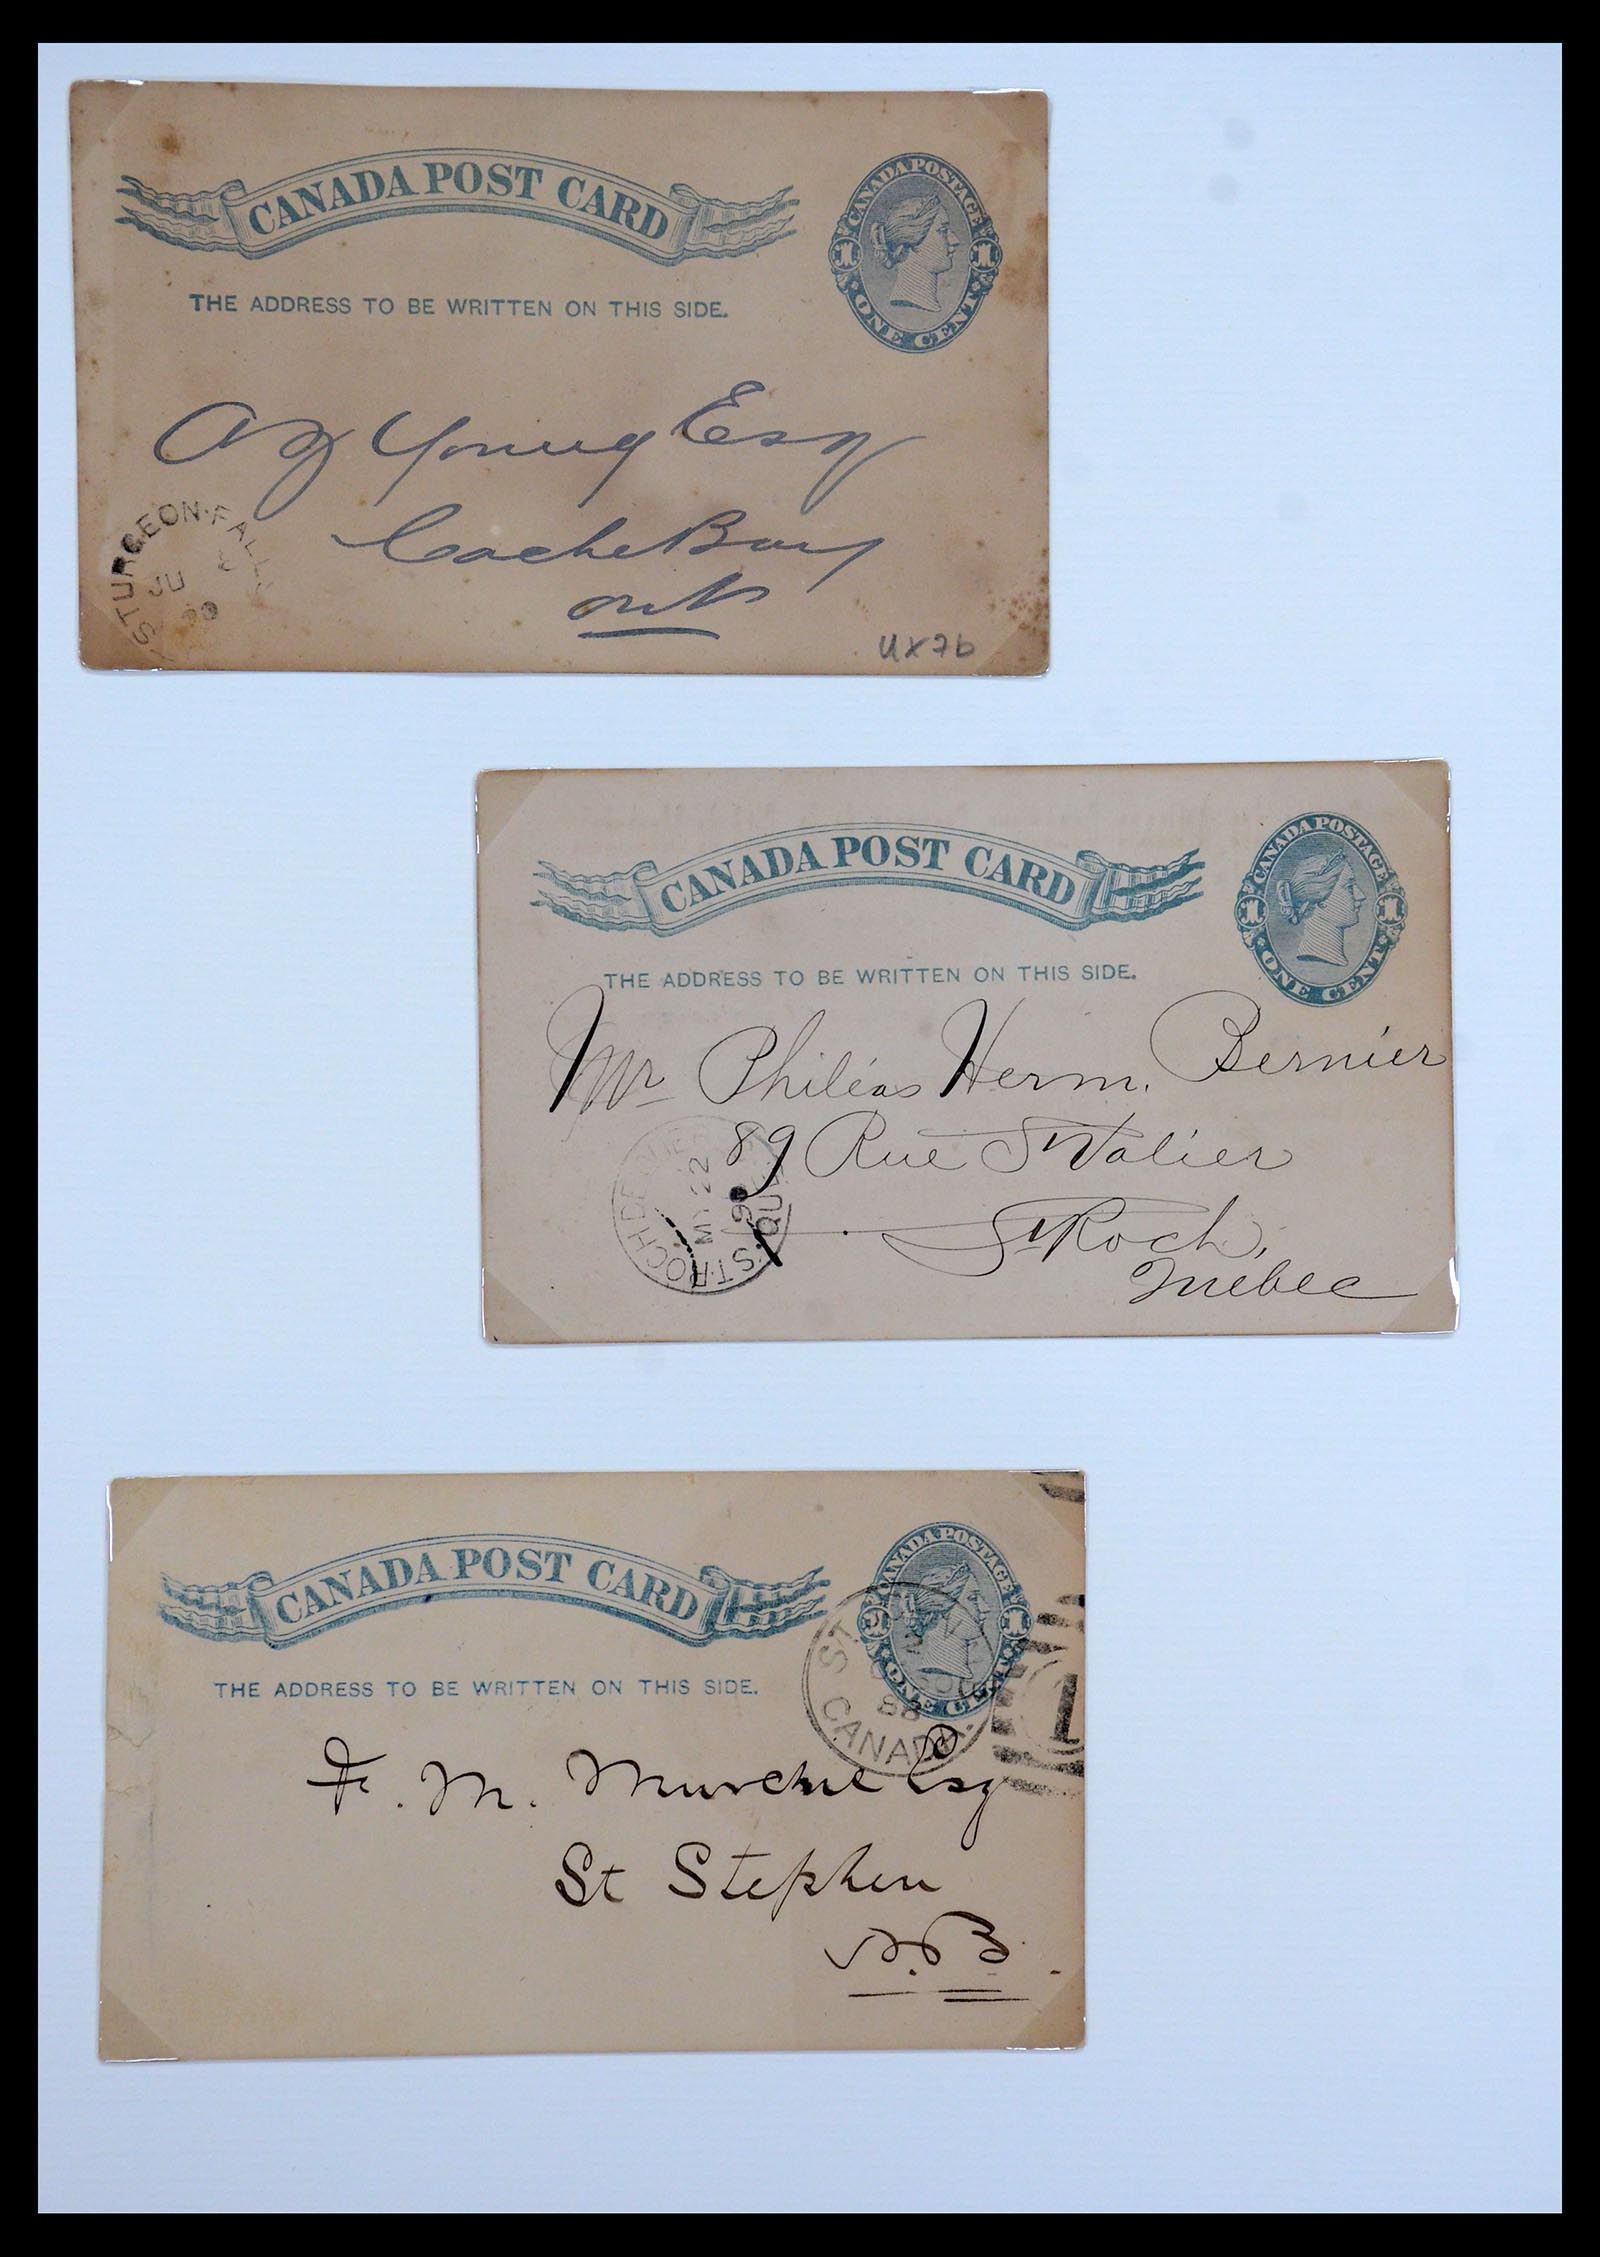 CANADA POST CARD
CANADA POSTAGE
1 1
ONE CENT
THE ADDRESS TO BE WRITTEN ON THIS SIDE.
Young Esq
Cache Bay
Ont
STURGEON-FALL
JU
90
UX7b
CANADA POST CARD
CANADA POSTAGE
1 1
ONE CENT
THE ADDRESS TO BE WRITTEN ON THIS SIDE.
Mr Philéas Herm. Bernier
89 Rue St Valier
St Roch,
Quebec
ST. ROCH DE QUEBEC
MY 22
90
QUE
CANADA POST CARD
CANADA POSTAGE
1 1
ONE CENT
THE ADDRESS TO BE WRITTEN ON THIS SIDE.
ST.
88
CANADA
1
F. M. Murchie Esq
St Stephen
N.B.